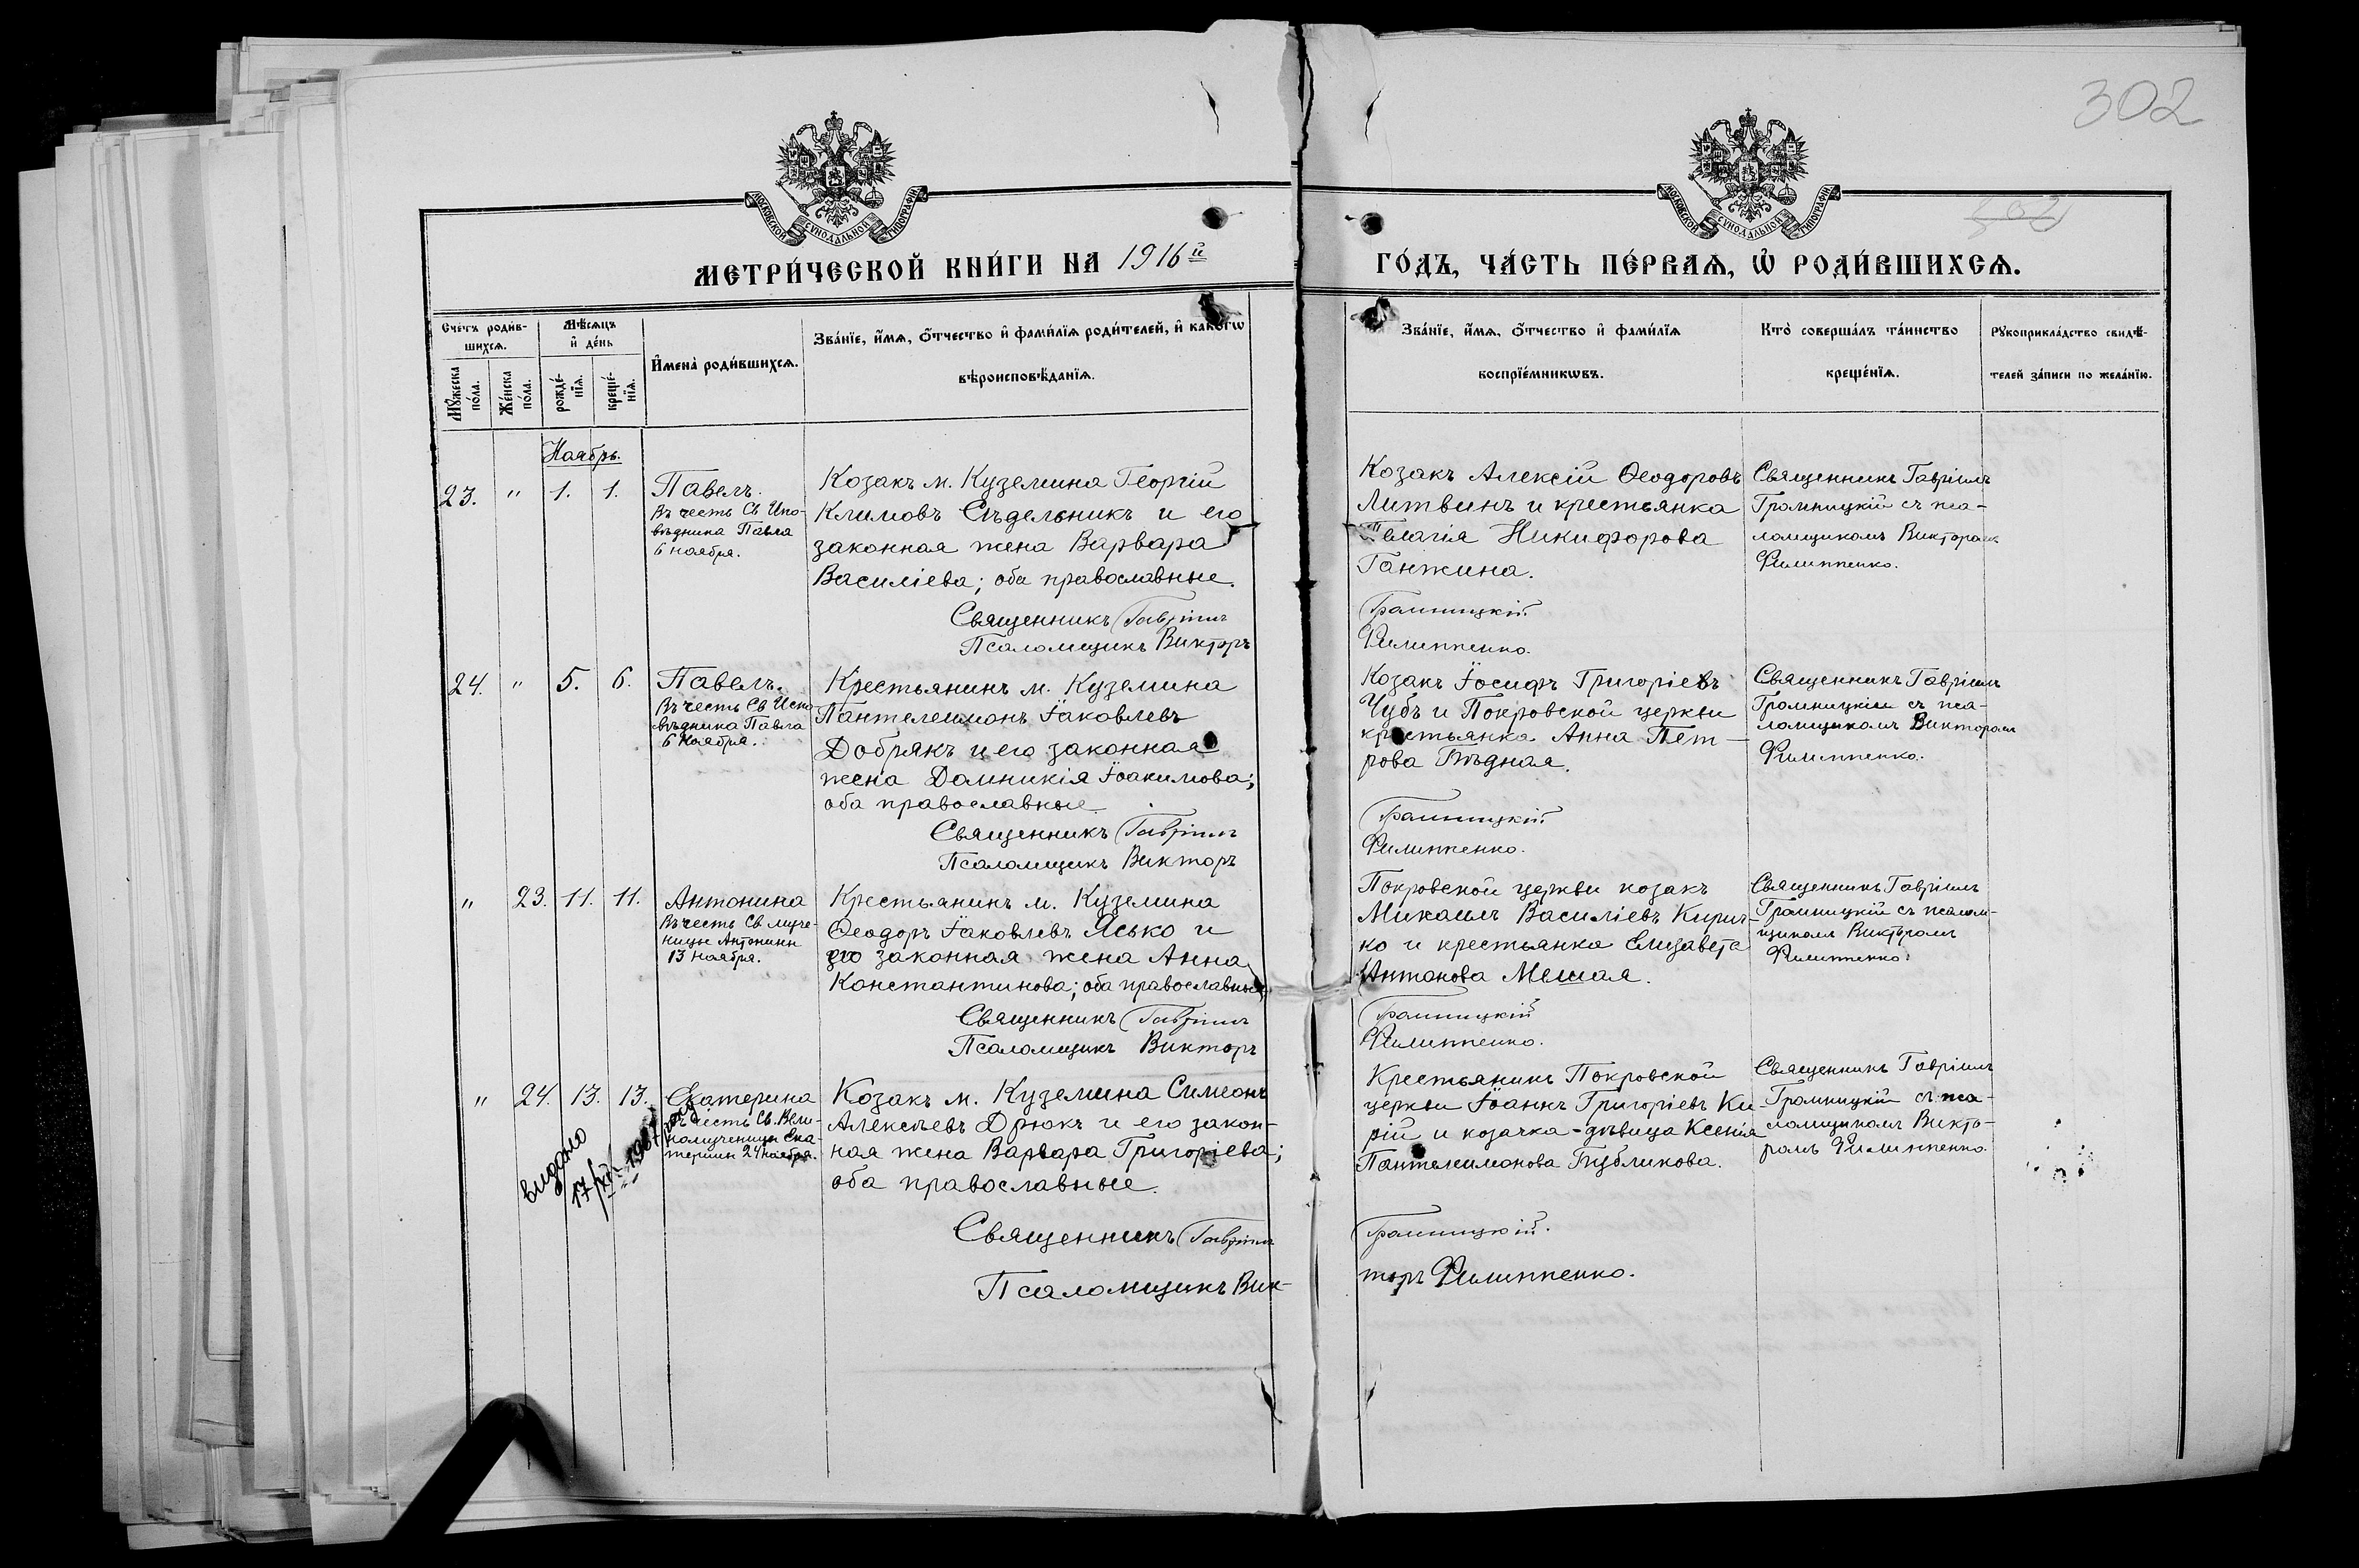 302
МОСКОВСКОЙ СѴНОДАЛЬНОЙ ТИПОГРАФІИ
МОСКОВСКОЙ СѴНОДАЛЬНОЙ ТИПОГРАФІИ
МЕТРИ́ЧЕСКОЙ КНИ́ГИ НА 1916й
ГО́ДЪ, ЧА́СТЬ ПЕ́РВАѦ, Ѡ҆ РОДИ́ВШИХСѦ.
Сче́тъ роди́в-
шихсѧ.
Мꙋ́жеска
по́ла.
Же́нска
по́ла.
Мѣ́сѧцъ
и҆ де́нь
рожде́-
нїѧ.
креще́-
нїѧ.
И҆мена̀ роди́вшихсѧ.
Зва́нїе, и҆́мѧ, ѻ҆́тчество и҆ фами́лїѧ роди́телей, и҆ како́гѡ
вѣроисповѣ́данїѧ.
Зва́нїе, и҆́мѧ, ѻ҆́тчество и҆ фами́лїѧ
воспрїе́мникѡвъ.
Кто̀ соверша́лъ та́инство
креще́нїѧ.
Рꙋкоприкла́дство свидѣ́-
телей за́писи по жела́нїю.
Ноябрь.
23. " 1. 1.
Павелъ.
Въ честь Св Испо-
вѣдника Павла
6 ноября.
Козакъ м. Куземина Георгій
Климовъ Сѣдельникъ и его
законная жена Варвара
Василіева; оба православные.
Священникъ Гавріилъ
Псаломщикъ Викторъ
Козакъ Алексій Ѳеодоровъ
Литвинъ и крестьянка
Пелагія Никифорова
Ганжина.
Грамницкій
Филиппенко.
Священникъ Гавріилъ
Грамницкій съ пса-
ломщикомъ Викторомъ
Филиппенко.
24. " 5. 6.
Павелъ.
Въ честь Св Испо
вѣдника Павла
6 ноября.
Крестьянинъ м. Куземина
Пантелеимонъ Іаковлевъ
Добрякъ и его законная
жена Домникія Іоакимова;
оба православные
Священникъ Гавріилъ
Псаломщикъ Викторъ
Козакъ Іосифъ Григоріевъ
Чубъ и Покровской церкви
крестьянка Анна Пет-
рова Бѣдная.
Грамницкій
Филиппенко.
Священникъ Гавріилъ
Грамницкій съ пса-
ломщикомъ Викторомъ
Филиппенко.
" 23. 11. 11.
Антонина
Въ честь Св муче-
ницы Антонины
13 ноября.
Крестьянинъ м. Куземина
Ѳеодоръ Іаковлевъ Ясько и
его законная жена Анна
Константинова; оба православные
Священникъ Гавріилъ
Псаломщикъ Викторъ
Покровской церкви козакъ
Михаилъ Василіевъ Кирич-
ко и крестьянка Елизавета
Антонова Мешая.
Грамницкій
Филиппенко.
Священникъ Гавріилъ
Грамницкій съ псалом-
щикомъ Викторомъ
Филиппенко.
" 24. 13. 13.
Екатерина
Въ честь Св. Вели-
комученицы Ека-
терины 24 ноября.
видано
17/XI 1967
Козакъ м. Куземина Симеонъ
Алексѣевъ Дрюкъ и его закон-
ная жена Варвара Григоріева;
оба православные.
Священникъ Гавріилъ
Псаломщикъ Вик-
Крестьянинъ Покровской
церкви Іоаннъ Григоріевъ Ки-
рій и козачка-дѣвица Ксенія
Пантелеимонова Бубликова.
Грамницкій.
торъ Филиппенко.
Священникъ Гавріилъ
Грамницкій съ пса-
ломщикомъ Викто-
ромъ Филиппенко.